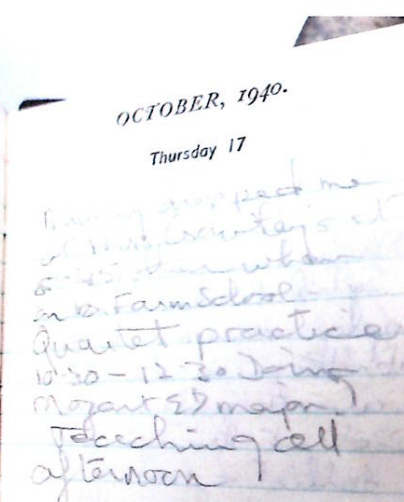 OCTOBER, 1940.
Thursday 17
dropped me
at Miss
on to Farm School
Quartet practice
10.30 - 12.30 Doing
Mozart Eb major!
Teaching all
afternoon